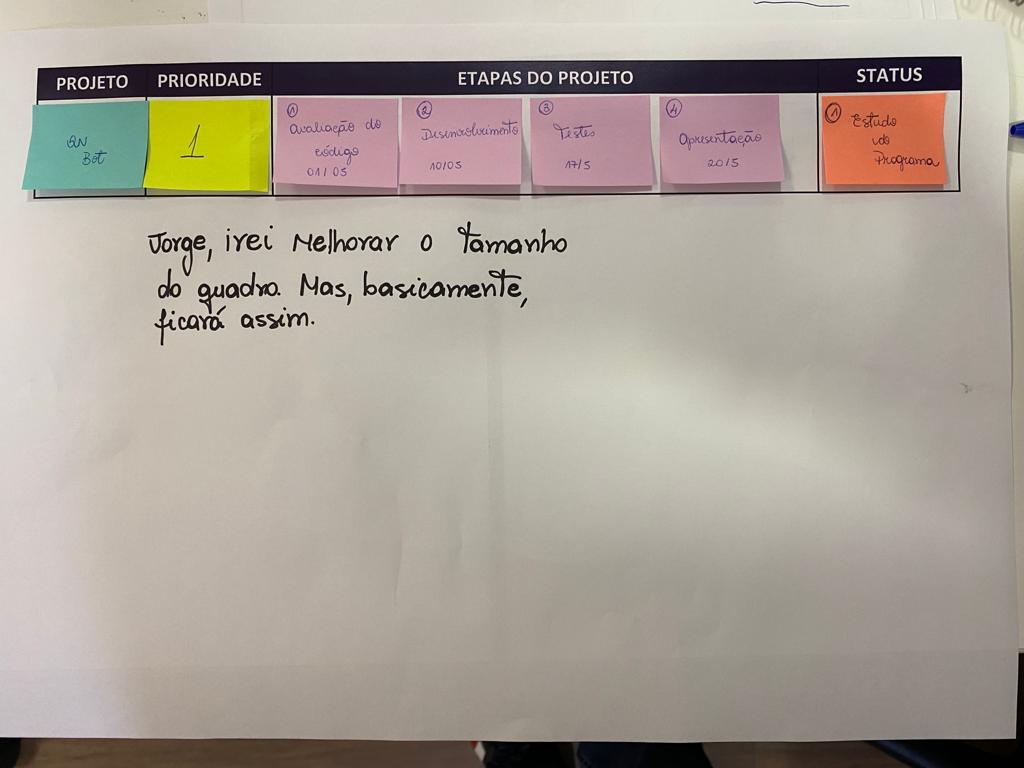 PROJETO PRIORIDADE ETAPAS DO PROJETO STATUS
Bot
1
1
avaliação do
código
01/05
2
Desenvolvimento
10/05
3
Testes
17/5
4
Apresentação
20/5
1
Estudo
do
Programa
Jorge, irei Melhorar o tamanho
do quadro. Mas, basicamente,
ficará assim.